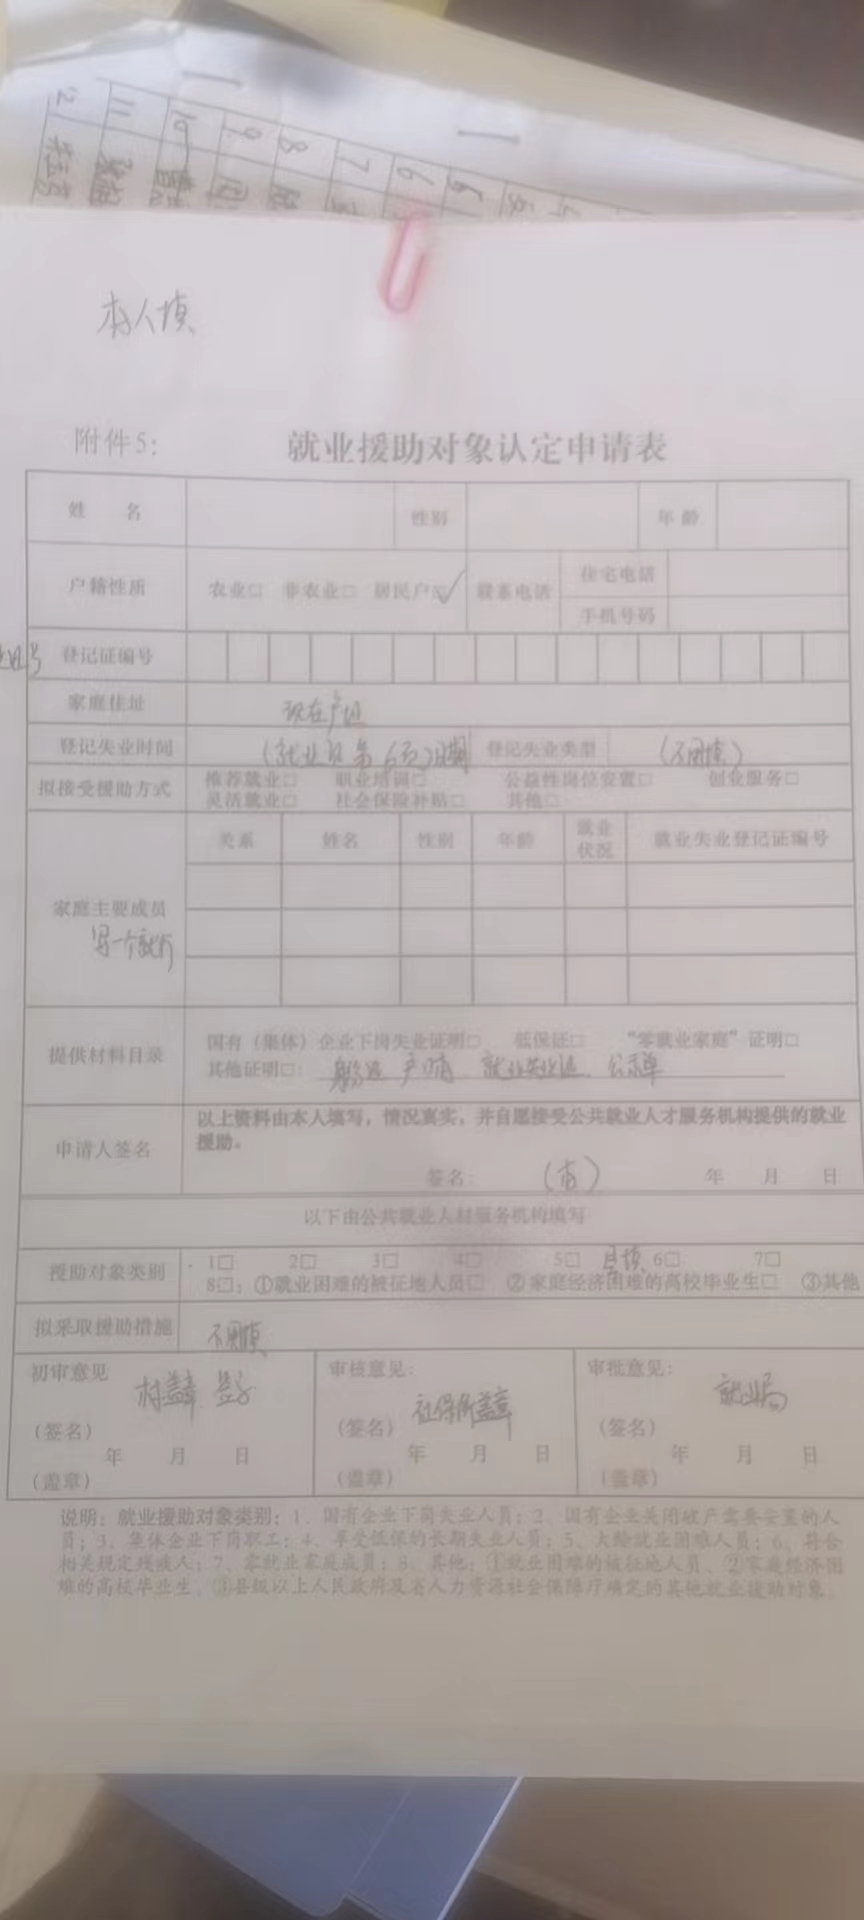 12 11 10 9 8 7 6 5
本人填
附件5：
就业援助对象认定申请表
姓 名 性别 年龄
户籍性质 农业□ 非农业□ 居民户☑ 联系电话 住宅电话
手机号码
登记证编号
家庭住址 现在户口
登记失业时间 (就业证第6页)日期 登记失业类型 (不用填)
拟接受援助方式 推荐就业□ 职业培训□ 公益性岗位安置□ 创业服务□
灵活就业□ 社会保险补贴□ 其他□
关系 姓名 性别 年龄 就业状况 就业失业登记证编号
家庭主要成员
写一个就行
提供材料目录 国有（集体）企业下岗失业证明□ 低保证□ “零就业家庭”证明□
其他证明□： 身份证 户口 就业失业证、公示单
以上资料由本人填写，情况真实，并自愿接受公共就业人才服务机构提供的就业
援助。
申请人签名
签名： (本) 年 月 日
以下由公共就业人材服务机构填写
援助对象类别 1□ 2□ 3□ 4□ 5□ 6□ 7□
8□：①就业困难的被征地人员□ ②家庭经济困难的高校毕业生□ ③其他
拟采取援助措施 不用填
初审意见 审核意见： 审批意见：
村盖章 签字 社保所盖章 就业局
（签名） （签名） （签名）
年 月 日 年 月 日 年 月 日
（盖章） （盖章） （盖章）
说明：就业援助对象类别：1、国有企业下岗失业人员；2、国有企业关闭破产需要安置的人
员；3、集体企业下岗职工；4、享受低保的长期失业人员；5、大龄就业困难人员；6、符合
相关规定残疾人；7、零就业家庭成员；8、其他：①就业困难的被征地人员、②家庭经济困
难的高校毕业生、③县级以上人民政府及省人力资源社会保障厅确定的其他就业援助对象。